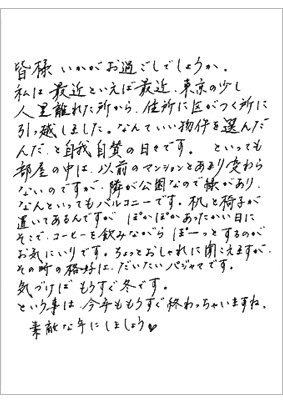 皆様 いかがお過ごしでしょうか。
私は 最近といえば最近、東京の少し
人里離れた所から、住所に区がつく所に
引っ越しました。なんていい物件を選んだ
んだ、と自我自賛の日々です。 といっても
部屋の中は、以前のマンションとあまり変わら
ないのですが、隣が公園なので緑があり、
なんといってもバルコニーです。机と椅子が
置いてあるんですが ぽかぽかあったかい日に
そこで、コーヒーを飲みながら ぼーっとするのが
お気にいりです。ちょっとおしゃれに聞こえますが、
その時の格好は、だいたいパジャマです。
気づけば もうすぐ冬です。
という事は 今年ももうすぐ終わっちゃいますね。
素敵な年にしましょう♥